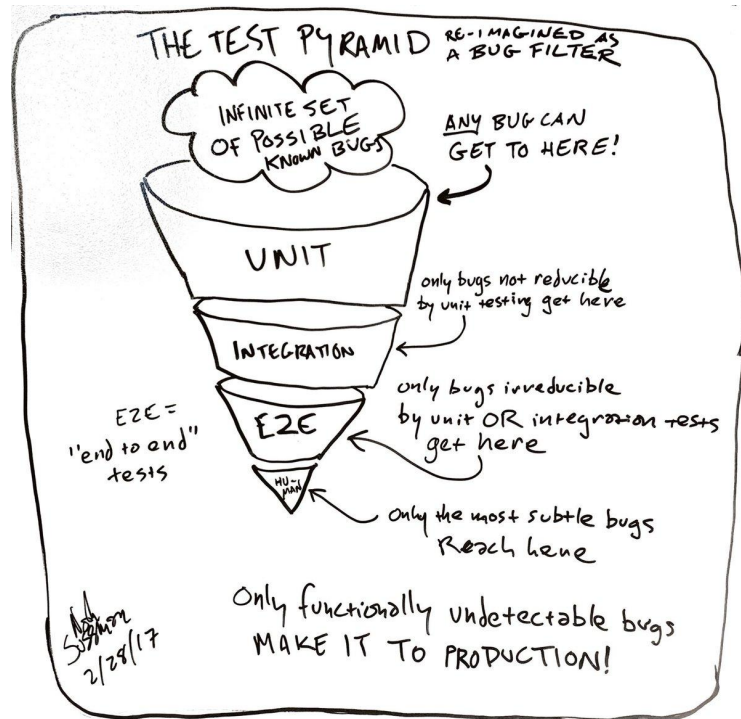 THE TEST PYRAMID
RE-IMAGINED AS
A BUG FILTER
INFINITE SET
OF POSSIBLE
KNOWN BUGS
ANY BUG CAN
GET TO HERE!
UNIT
only bugs not reducible
by unit testing get here
INTEGRATION
only bugs irreducible
by unit OR integration tests
get here
E2E
E2E =
"end to end"
tests
HU-
MAN
Only the most subtle bugs
Reach here
Only functionally undetectable bugs
MAKE IT TO PRODUCTION!
Noah
Sussman
2/28/17